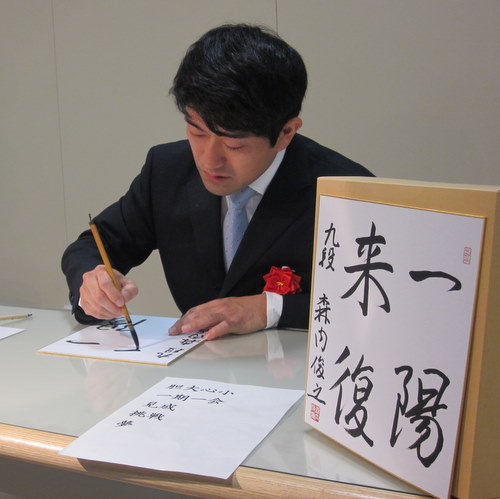 一陽
来復
九段 森内俊之
胆大心小
一期一会
挑戦
夢